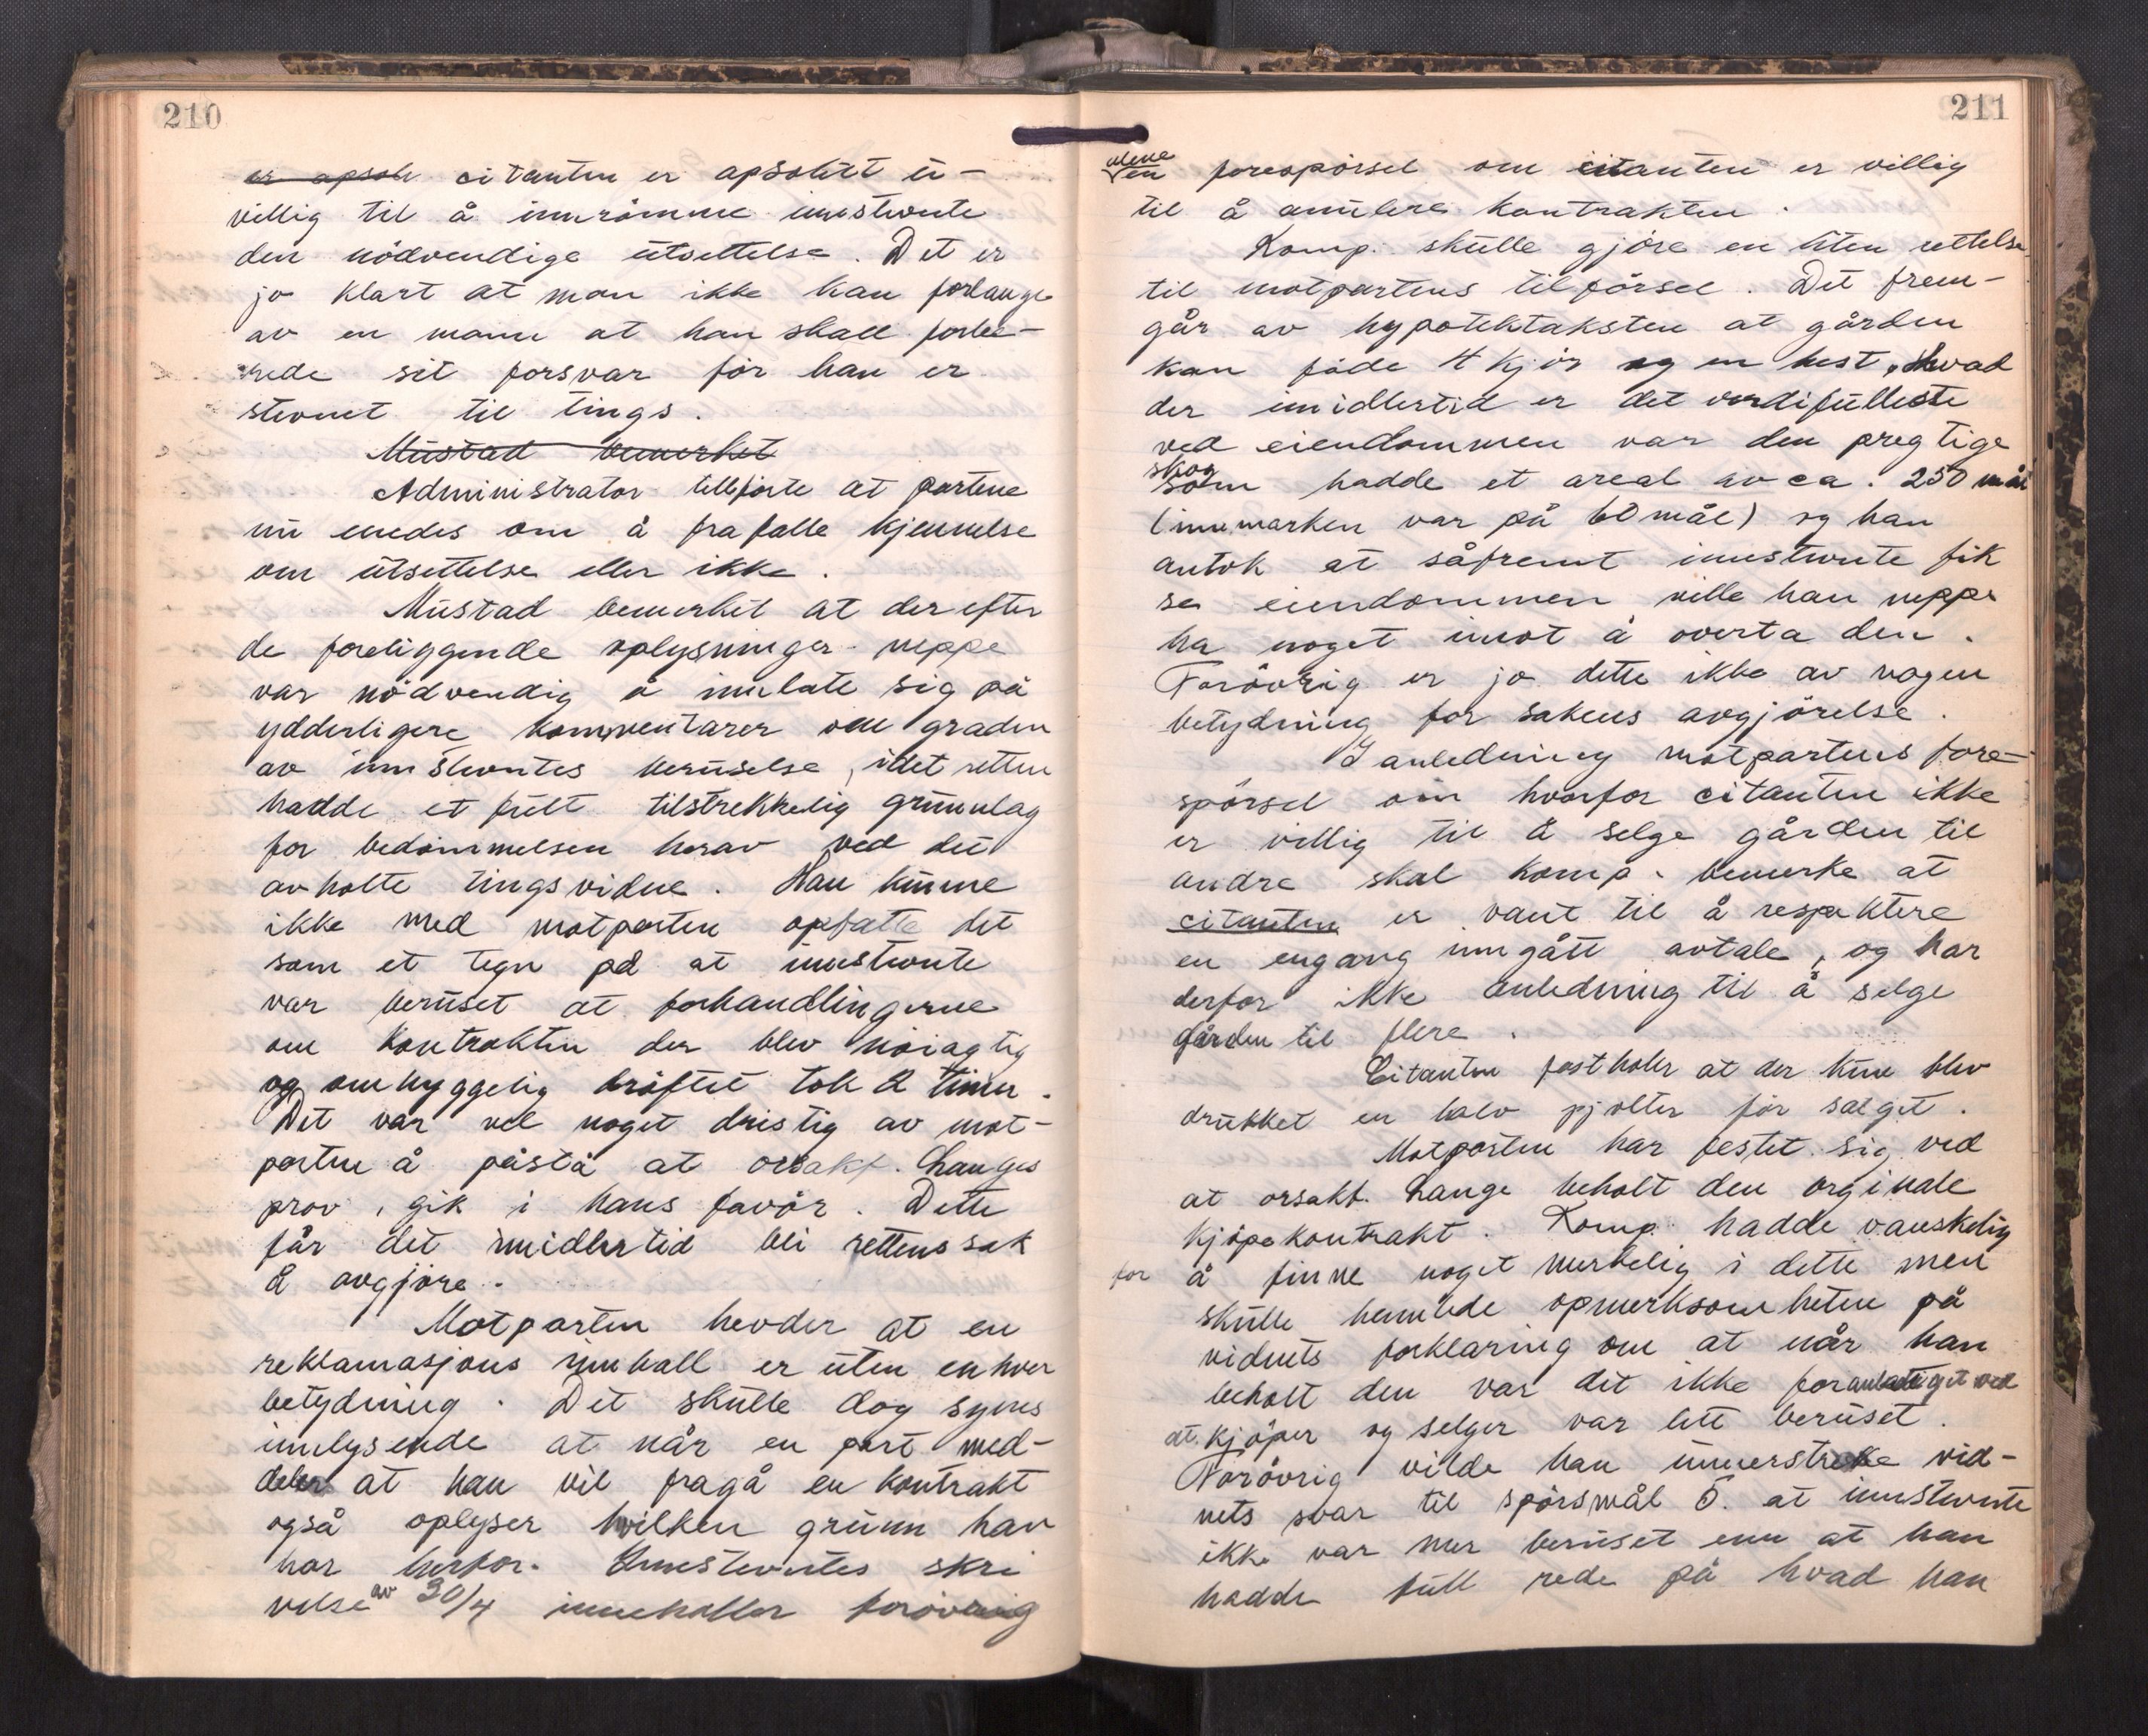 210
er apsolu citanten er apsolutt u-
villig til å innrömme innstevnte
den nödvendige utsettelse. Det er
jo klart at man ikke kan forlange
av en mann at han skall forbe-
rede sit forsvar för han er
stevnet til tings.
Mustad bemerket
Administrator tillförte at partene
nu enedes om å frafalle kjennelse
om utsettelse eller ikke.
Mustad bemerket at der efter
de foreliggende oplysninger neppe
var nödvendig å innlate sig på
ydderligere kommentarer om graden
av innstevntes beruselse, idet retten
hadde et fullt tilstrekkelig grunnlag
for bedömmelsen herav ved det
avholte tingsvidne. Han kunne
ikke med motparten opfatte det
som et tegn på at innstevnte
var beruset at forhandlingerne
om kontrakten der blev nöiagtig
og omhyggelig dröftet tok 2 timer.
Det var vel noget dristig av mot-
parten å påstå at orsakf. Langes
prov, gik i hans favör. Dette
får det imidlertid bli rettens sak
å avgjöre.
Motparten hevder at en
reklamasjons innhall er uten enhver
betydning. Det skulle dog synes
innlysende at når en part med-
deler at han vil fragå en kontrakt
også oplyser hvilken grunn han
har herfor. Innstevntes skri
velse av 30/4 inneholler forövrig
211
alene
en forespörsel om citanten er villig
til å anulere kontrakten.
Komp. skulle gjöre en liten rettelse
til motpartens tilförsel. Det frem-
går av hypotektaksten at gården
kan föde 4 kjör og en hest, hvad
der imidlertid er det verdifulleste
ved eiendommen var den pregtige
skog
som hadde et areal av ca. 250 mål
(innmarken var på 60 mål) og han
antok at såfremt innstevnte fik
se eiendommen ville han neppe
ha noget imot å overta den.
Forövrig er jo dette ikke av nogen
betydning for sakens avgjörelse.
I anledning motpartens fore-
spörsel om hvorfor citanten ikke
er villig til å selge gården til
andre skal komp. bemerke at
citanten er vant til å respektere
en engang inngått avtale, og har
derfor ikke anledning til å selge
gården til flere.
Citanten fastholer at der kun blev
drukket en halv pjolter för salget.
Motparten har festet sig ved
at orsakf. Lange beholt den orginale
kjöpekontrakt. Komp. hadde vanskelig
for å finne noget merkelig i dette men
skulle henlede opmerksomheten på
vidnets forklaring om at når han
beholt den var det ikke foranlediget ved
at kjöper og selger var lett beruset.
Forövrig vilde han unnerstreke vid-
nets svar til spörsmål 5. at innstevnte
ikke var mer beruset enn at han
hadde full rede på hvad han